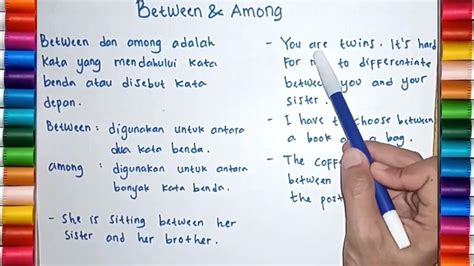 Between & Among
Between dan among adalah
kata yang mendahului kata
benda atau disebut kata
depan.
Between : digunakan untuk antara
dua kata benda.
among : digunakan untuk antara
banyak kata benda.
- She is sitting between her
sister and her brother.
- You are twins. It's hard
for to differentiate
between you and your
sister.
- I have to choose between
a book or a bag.
- The
between
the